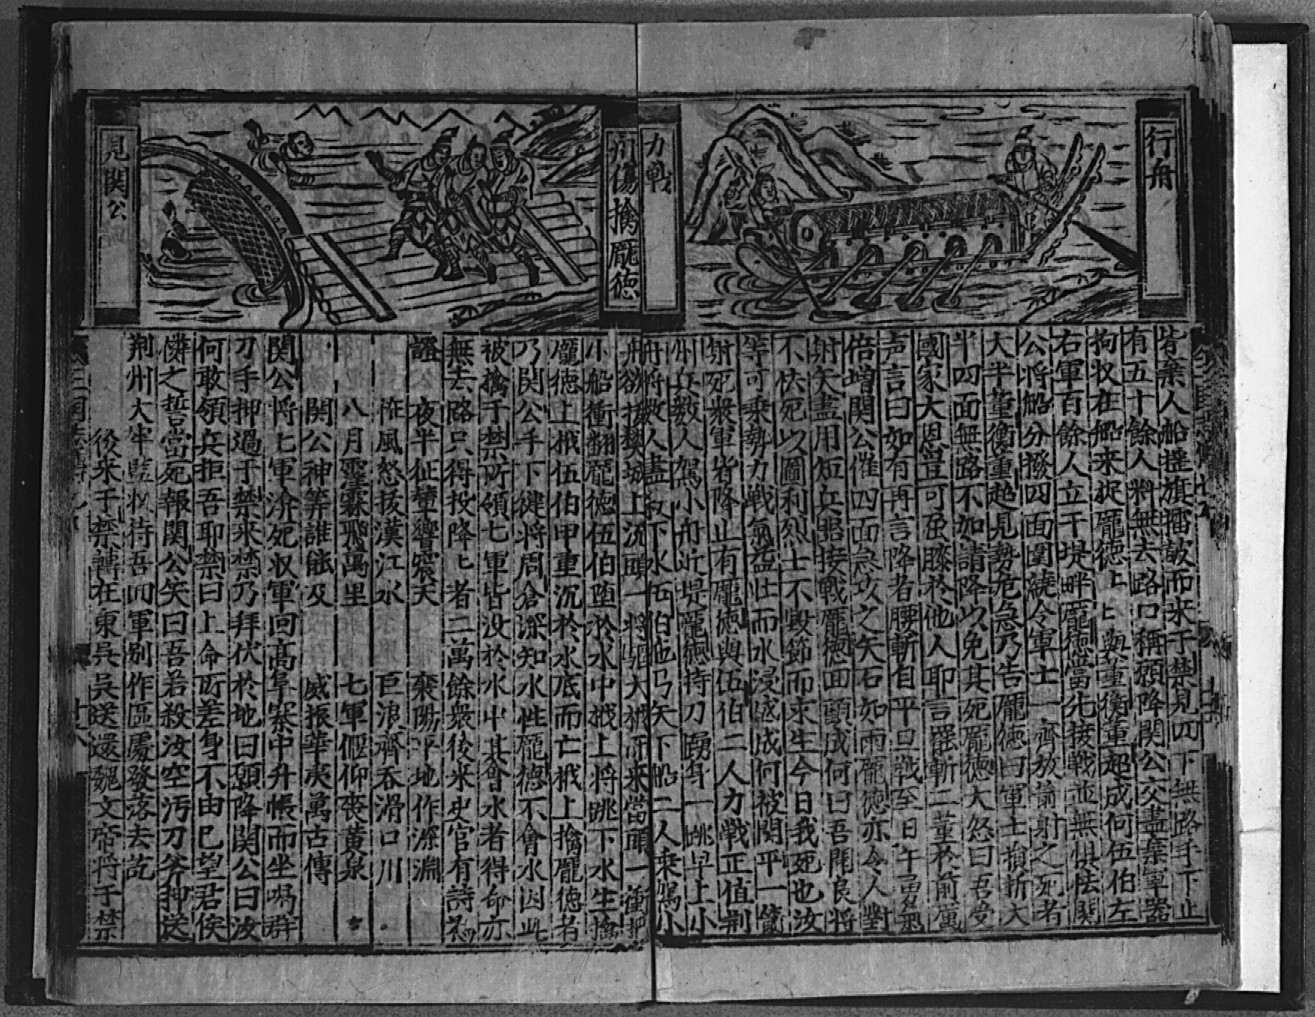 行舟
力戰
皆棄人船擂旗擂鼓而来于禁見四下無路手下止
有五十餘人料無去路口稱願降関公交盡棄軍器
拘収在船来捉龐德上上與董衡董超成何伍伯左
右軍百餘人立于堤畔龐德當先接戰並無惧怯関
公將船分撥四面圍繞令軍士一齊放箭射之死者
大半董衡董超見勢危急乃告龐德曰軍士損折大
半四面無路不如請降以免其死龐德大怒曰吾受
國家大恩豈可屈膝於他人耶言罷斬二董於前厲
声言曰如有再言降者腰斬自平旦戰至日午勇氣
倍增関公催四面急攻之矢石如雨龐德亦令人對
射矢盡用短兵器接戰龐德回顧成何曰吾聞良將
不怯死以圖利烈士不毀節而求生今日我死也汝
等可乘勢力戰氣益壮而水浸成成何被関平一箭
射死衆軍皆降止有龐德與伍伯二人力戰正值荆
州兵数人駕小舟近堤龐德持刀踴身一跳早上小
舟將数人盡下水伍伯也弓矢下船二人乘駕小
州傷擒龐德
見関公
舟欲投樊城上流頭一將駆大栰而来當頭一衝把
小船衝翻龐德伍伯堕於水中栰上將跳下水生擒
龐德上栰伍伯甲重沉於水底而亡栰上擒龐德者
乃関公手下健將周倉深知水性龐德不會水因此
被擒于禁所領七軍皆没於水中其會水者得命亦
無去路只得投降七者二萬餘衆後来史官有詩為
證 夜半征鼙響震天 襄陽平地作深淵
恠風怒拔漢江水 巨浪齊吞滑口川
八月霪霖飛萬里 七軍偃仰喪黄泉
関公神筭誰能及 威振華夷萬古傳
関公將七軍渰死収軍回高阜寨中升帳而坐嗚群
刀手押過于禁来禁乃拜伏於地曰願降関公曰汝
何敢領兵拒吾耶禁曰上命所差身不由已望君侯
憐之誓當死報関公笑曰吾若殺汝空汚刀斧押送
荆州大牢監収待吾回軍别作區處發落去訖
後来于禁轉在東吳吳送還魏文帝将于禁